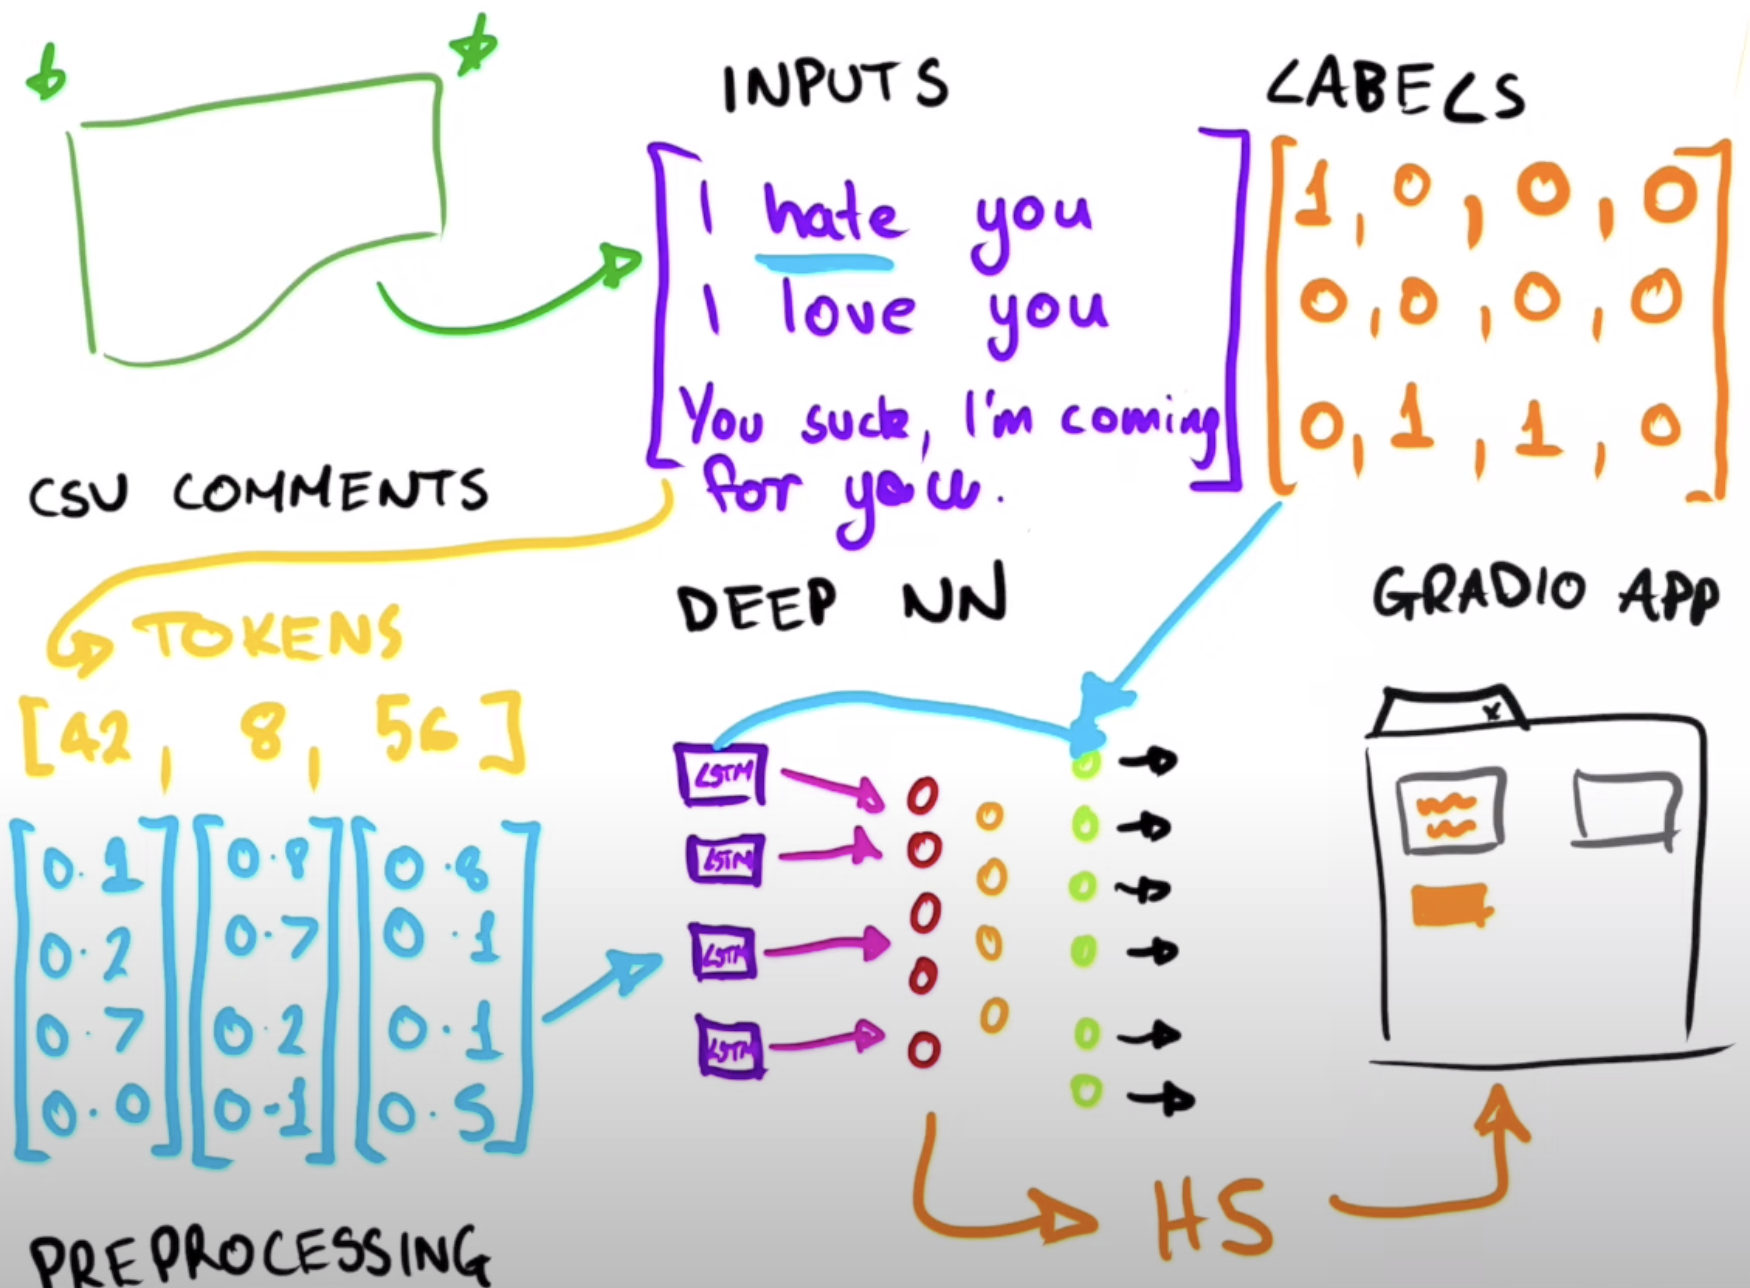 INPUTS
LABELS
I hate you
I love you
You suck, I'm coming
for you.
1, 0, 0, 0
0, 0, 0, 0
0, 1, 1, 0
CSV COMMENTS
TOKENS
[42, 8, 56]
0.1 0.8 0.8
0.2 0.7 0.1
0.7 0.2 0.1
0.0 0.1 0.5
PREPROCESSING
DEEP NN
LSTM
LSTM
LSTM
LSTM
H5
GRADIO APP
x